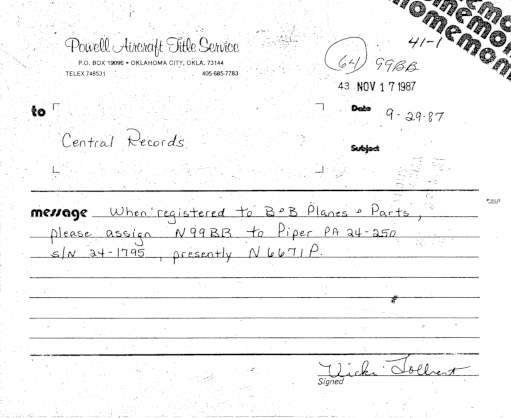 memo
41-1
Powell Aircraft Title Service
P.O. BOX 19096 • OKLAHOMA CITY, OKLA. 73144
TELEX 748531 405 685-7783
64 99BB
43 NOV 17 1987
to
Date 9-29-87
Central Records
Subject
message When registered to B&B Planes & Parts,
please assign N99BB to Piper PA 24-250
s/N 24-1795, presently N6671P.
Vicki Tolbert
Signed